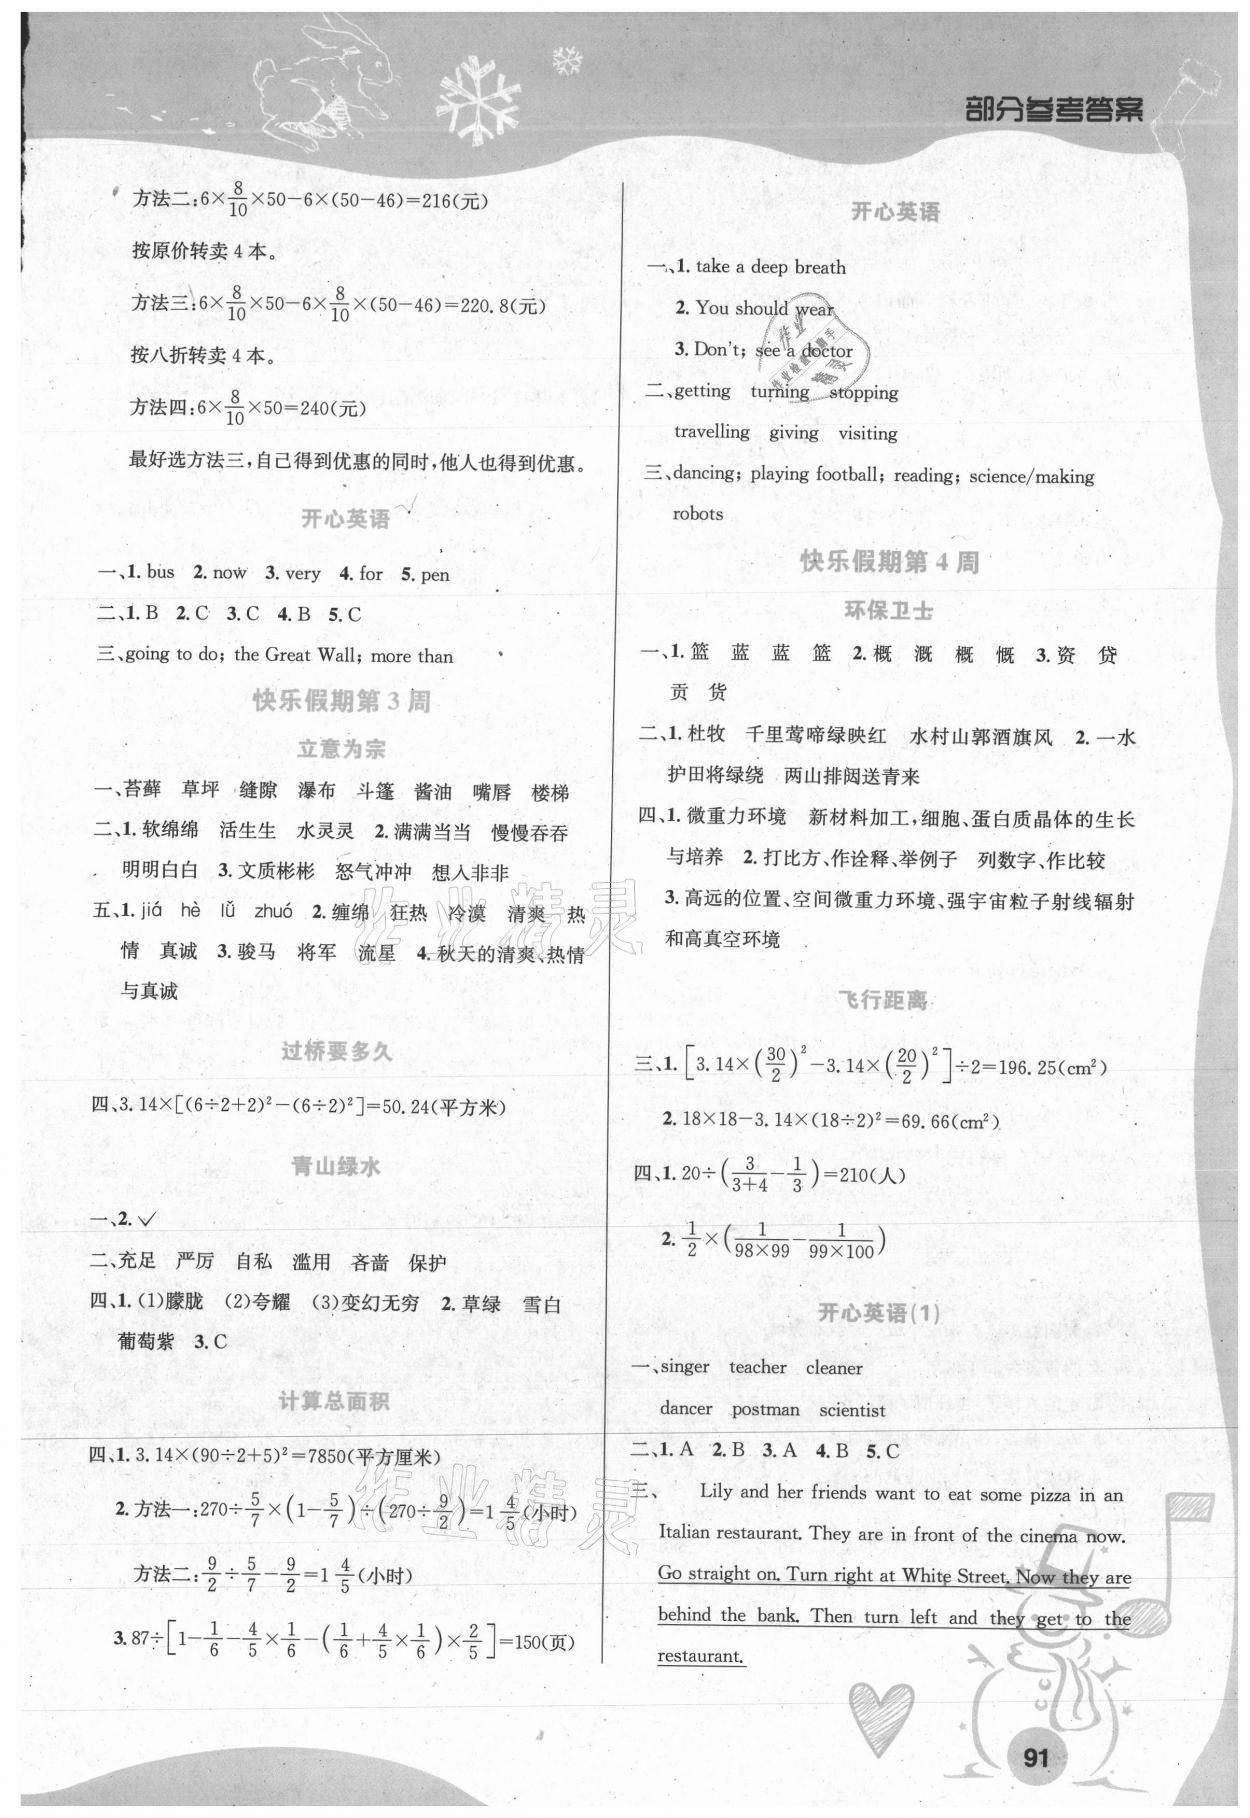 部分参考答案
方法二:6×8/10×50-6×(50-46)=216(元)
按原价转卖 4 本。
方法三:6×8/10×50-6×8/10×(50-46)=220.8(元)
按八折转卖 4 本。
方法四:6×8/10×50=240(元)
最好选方法三,自己得到优惠的同时,他人也得到优惠。
开心英语
一、1. bus 2. now 3. very 4. for 5. pen
二、1. B 2. C 3. C 4. B 5. C
三、going to do; the Great Wall; more than
快乐假期第 3 周
立意为宗
一、苔藓 草坪 缝隙 瀑布 斗篷 酱油 嘴唇 楼梯
二、1. 软绵绵 活生生 水灵灵 2. 满满当当 慢慢吞吞
明明白白 3. 文质彬彬 怒气冲冲 想入非非
五、1. jiá hè lǚ zhuó 2. 缠绵 狂热 冷漠 清爽 热
情 真诚 3. 骏马 将军 流星 4. 秋天的清爽、热情
与真诚
过桥要多久
四、3.14×[(6÷2+2)²-(6÷2)²]=50.24(平方米)
青山绿水
一、2. ✓
二、充足 严厉 自私 滥用 吝啬 保护
四、1. (1)朦胧 (2)夸耀 (3)变幻无穷 2. 草绿 雪白
葡萄紫 3. C
计算总面积
四、1. 3.14×(90÷2+5)²=7850(平方厘米)
2. 方法一:270÷5/7×(1-5/7)÷(270÷9/2)=1 4/5(小时)
方法二:9/2÷5/7-9/2=1 4/5(小时)
3. 87÷[1-1/6-4/5×1/6-(1/6+4/5×1/6)×2/5]=150(页)
开心英语
一、1. take a deep breath
2. You should wear
3. Don't; see a doctor
二、getting turning stopping
travelling giving visiting
三、dancing; playing football; reading; science/making
robots
快乐假期第 4 周
环保卫士
一、1. 篮 蓝 蓝 篮 2. 概 溉 概 慨 3. 资 贷
贡 货
二、1. 杜牧 千里莺啼绿映红 水村山郭酒旗风 2. 一水
护田将绿绕 两山排闼送青来
四、1. 微重力环境 新材料加工,细胞、蛋白质晶体的生长
与培养 2. 打比方、作诠释、举例子 列数字、作比较
3. 高远的位置、空间微重力环境、强宇宙粒子射线辐射
和高真空环境
飞行距离
三、1. [3.14×(30/2)²-3.14×(20/2)²]÷2=196.25(cm²)
2. 18×18-3.14×(18÷2)²=69.66(cm²)
四、1. 20÷(3/(3+4)-1/3)=210(人)
2. 1/2×(1/(98×99)-1/(99×100))
开心英语(1)
一、singer teacher cleaner
dancer postman scientist
二、1. A 2. B 3. A 4. B 5. C
三、 Lily and her friends want to eat some pizza in an
Italian restaurant. They are in front of the cinema now.
Go straight on. Turn right at White Street. Now they are
behind the bank. Then turn left and they get to the
restaurant.
作业精灵
作业精灵
作业
作业检查小助手
精灵
91